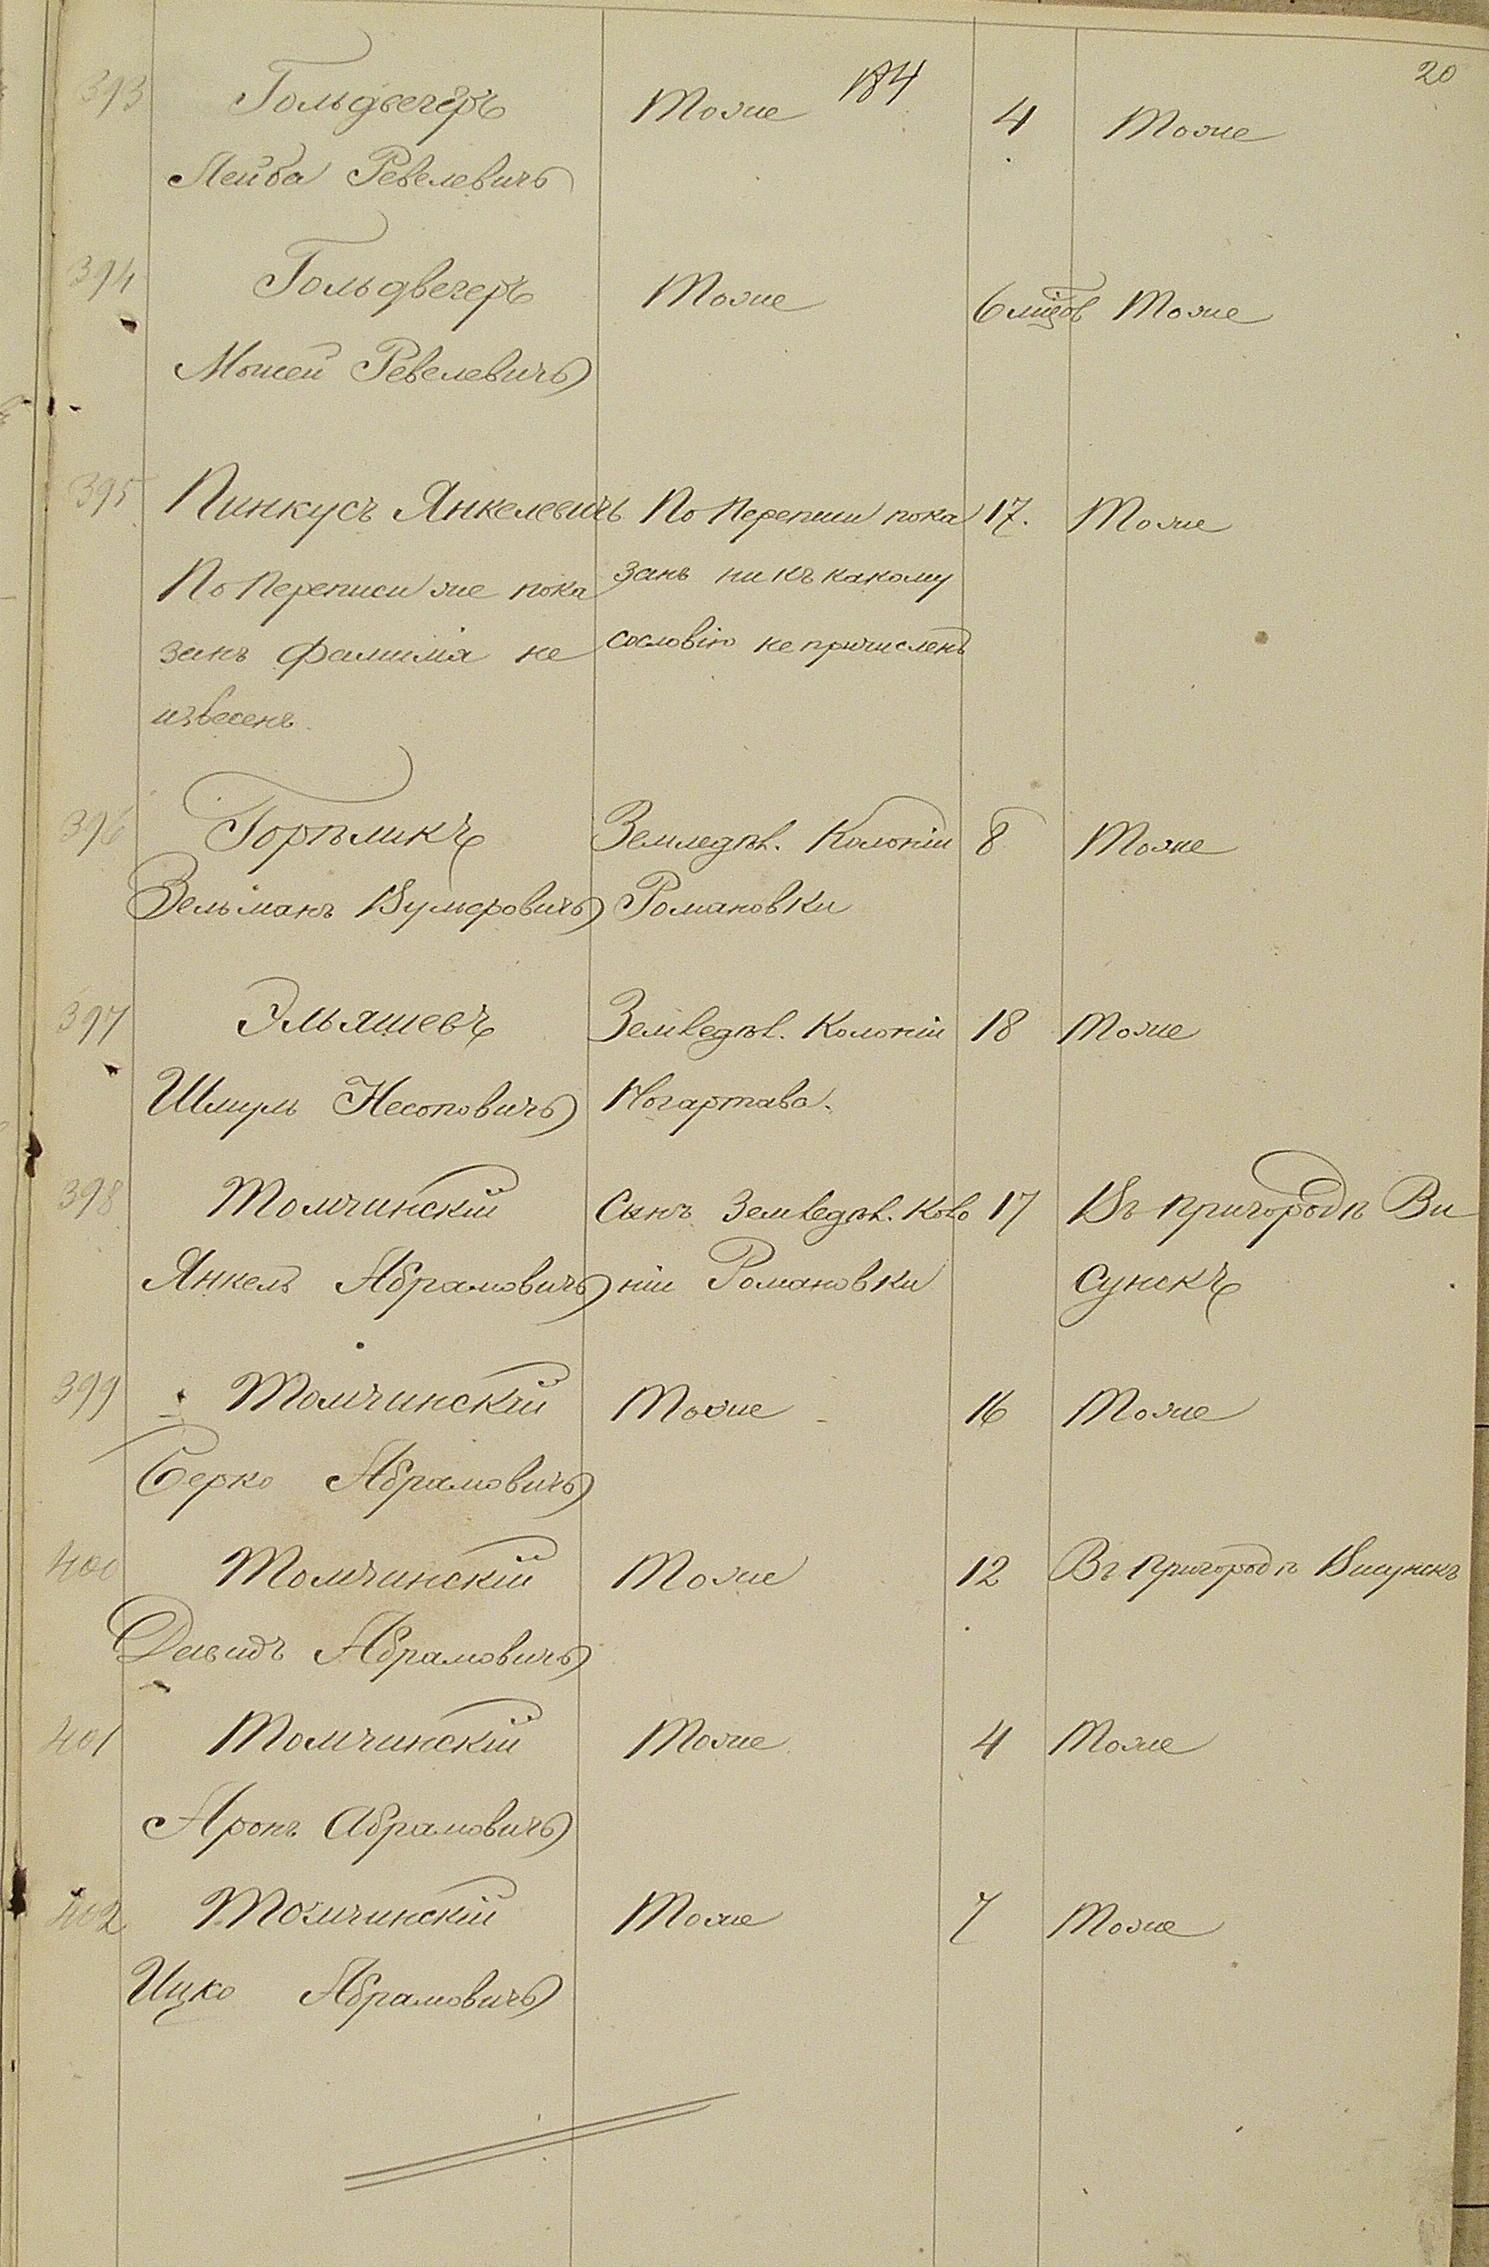 184
20
393 Гольдвегеръ Тоже 4 Тоже
Лейба Ревелевичъ
394 Гольдвегеръ Тоже 6 Тоже
Мошей Ревелевичъ
395 Пинкусъ Янкелевичъ По Переписи пока 17. Тоже
По Переписи же пока занъ ни къ какому
занъ фамилія не сословію не причисленъ
извесенъ.
396 Горѣликъ Земледѣл. Колоніи 8 Тоже
Зельманъ Вульфовичъ Романовки
397 Эльяшевъ Земледѣл. Колоніи 18 Тоже
Шмуль Ногартава.
398 Томчинскій Сынъ Земледѣл. Коло 17 Въ пригородѣ Ви
Янкель Абрамовичъ ніи Романовки сунскъ
399 Томчинскій Тоже 16 Тоже
Берко Абрамовичъ
400 Томчинскій Тоже 12 Въ Пригородѣ Висунскъ
Давидъ Абрамовичъ
401 Томчинскій Тоже 4 Тоже
Аронъ Абрамовичъ
402 Томчинскій Тоже 7 Тоже
Ицко Абрамовичъ